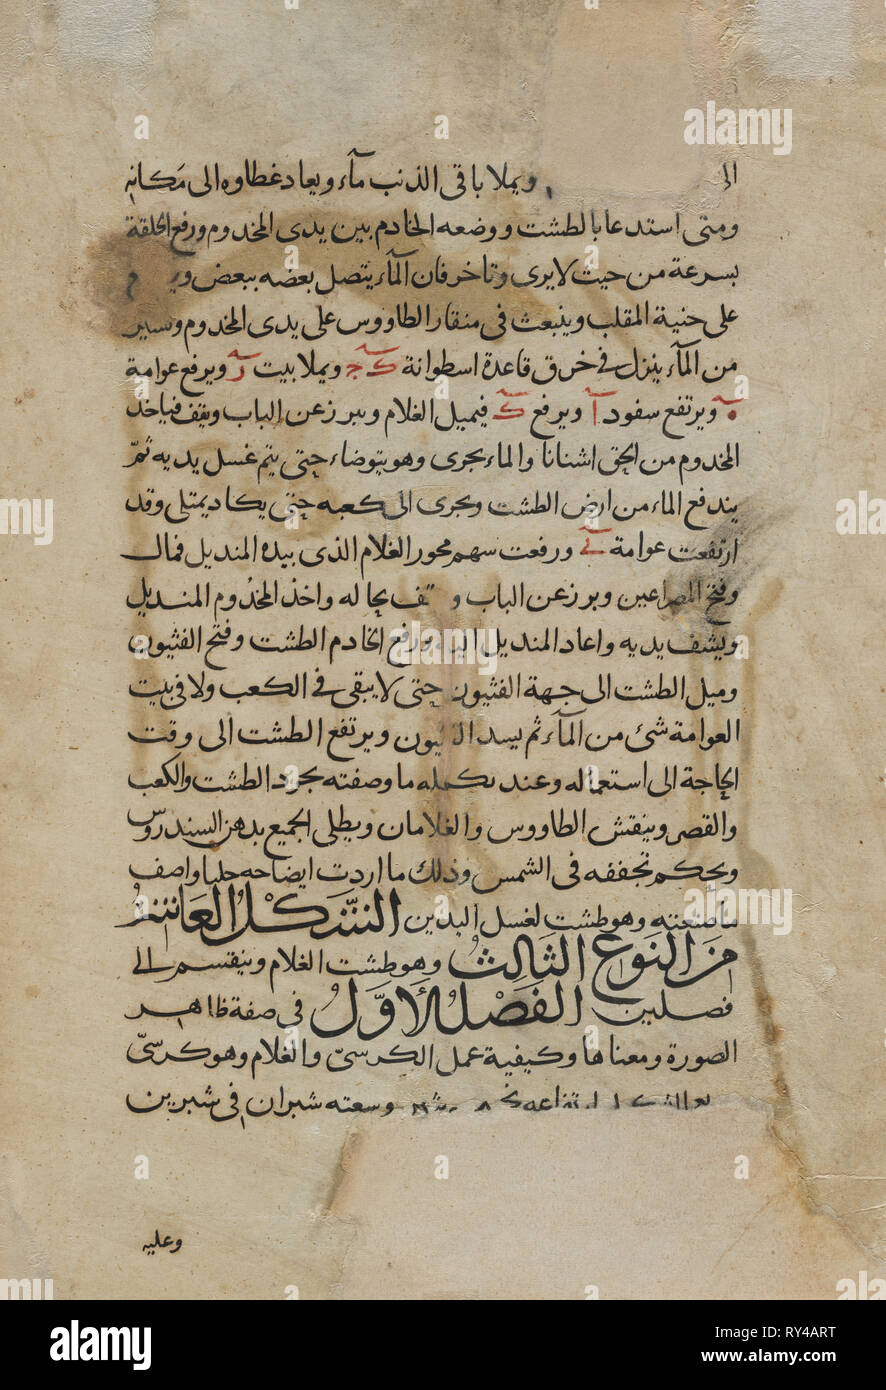 الى ويملا باقى الذنب مآء ويعاد غطاوه الى مكانه
ومتى استدعا بالطشت ووضعه الخادم بين يدى المخدوم ورفع الحلقة
بسرعة من حيث لا يرى وتاخر فان المآء يتصل بعضه ببعض
على حنية المقلب وينبعث فى منقار الطاووس على يدى المخدوم ويسير
من المآء ينزل فى خرق قاعدة اسطوانة ويملا بيت ويرفع عوامة
ويرتفع سفود ا ويرفع ك فيميل الغلام ويبرز عن الباب ويقف فياخذ
المخدوم من الحق اشنانا والماء يجرى وهو يتوضاء حتى يتم غسل يديه ثمّ
يندفع الماء من ارض الطشت ويجرى الى كعبه حتى يكاد يمتلى وقد
ارتفعت عوامة ورفعت سهم محور الغلام الذى بيده المنديل فمال
وفتح المصراعين وبرز عن الباب بحاله واخذ المخدوم المنديل
وينشف يديه واعاد المنديل اليه ورفع الخادم الطشت وفتح الفثيون
وميل الطشت الى جهة الفثيون حتى لا يبقى فى الكعب ولا فى بيت
العوامة شئ من المآء ثم يسد الفثيون ويرتفع الطشت الى وقت
الحاجة الى استعماله وعند تكمله ما وصفته يجرد الطشت والكعب
والقصر وينقش الطاووس والغلامان ويطلى الجميع بدهن السندروس
ويحكم تجففه فى الشمس وذلك ما اردت ايضاحه جليا واصف
ما صنعته وهو طشت لغسل اليدين الشكل العاشر
من النوع الثالث وهو طشت الغلام وينقسم الى
فصلين الفصل الاول فى صفة ظاهر
الصورة ومعناها وكيفية عمل الكرسىّ والغلام وهو كرسىّ
وسعته شبران فى شبرين
وعليه
alamy
Image ID: RY4ART
www.alamy.com